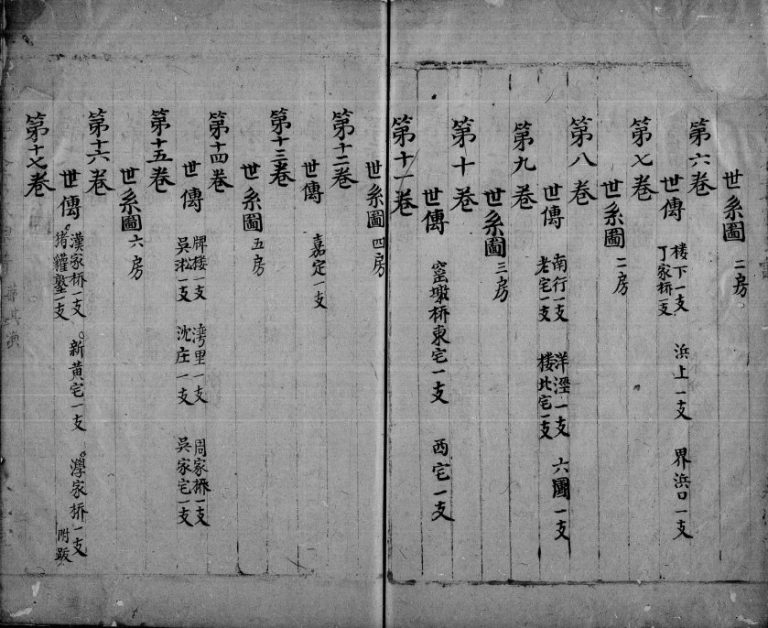 世系圖 二房
第六卷
世傳 樓下一支 丁家桥一支 浜上一支 界浜口一支
第七卷
世系圖 二房
第八卷
世傳 南行一支 老宅一支 洋涇一支 樓北宅一支 六圖一支
第九卷
世系圖 三房
第十卷
世傳 窑墩桥東宅一支 西宅一支
第十一卷
世系圖 四房
第十二卷
世傳 嘉定一支
第十三卷
世系圖 五房
第十四卷
世傳 牌楼一支 吳淞一支 灣里一支 沈庄一支 周家桥一支 吳家宅一支
第十五卷
世系圖 六房
第十六卷
世傳 漢家桥一支 一支 新黄宅一支 家桥一支 附跋
第十七卷